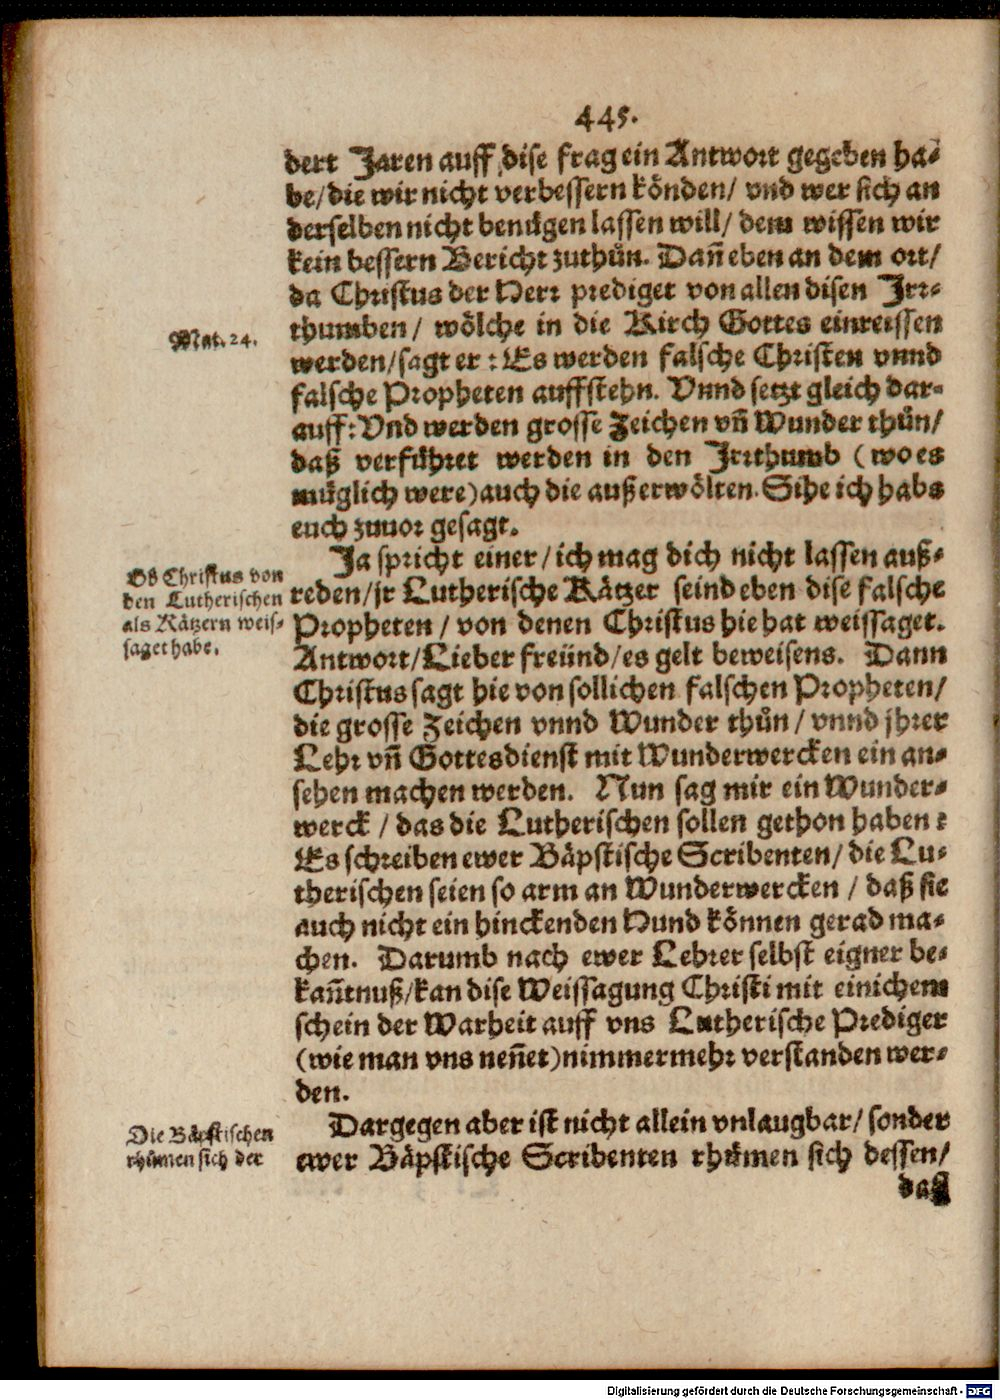 445.
dert Jaren auff dise frag ein Antwort gegeben ha-
be/die wir nicht verbessern könden/ vnd wer sich an
derselben nicht benügen lassen will/ dem wissen wir
kein bessern Bericht zuthůn. Dañ eben an dem ort/
da Christus der Herr prediget von allen disen Irr-
thumben/ wölche in die Kirch Gottes einreissen
Mat. 24.
werden/sagt er: Es werden falsche Christen vnnd
falsche Propheten auffstehn. Vnnd setzt gleich dar-
auff: Vnd werden grosse Zeichen vñ Wunder thůn/
daß verführet werden in den Irrthumb (wo es
müglich were) auch die außerwölten. Sihe ich habs
euch zuuor gesagt.
Ja spricht einer/ich mag dich nicht lassen auß-
Ob Christus von
den Lutherischen
als Kätzern weis-
saget habe.
reden/jr Lutherische Kätzer seind eben dise falsche
Propheten/ von denen Christus hie hat weissaget.
Antwort/Lieber freünd/es gelt beweisens. Dann
Christus sagt hie von sollichen falschen Propheten/
die grosse Zeichen vnnd Wunder thůn/ vnnd jhrer
Lehr vñ Gottesdienst mit Wunderwercken ein an-
sehen machen werden. Nun sag mir ein Wunder-
werck/ das die Lutherischen sollen gethon haben?
Es schreiben ewer Bäpstische Scribenten/ die Lu-
therischen seien so arm an Wunderwercken/ daß sie
auch nicht ein hinckenden Hund können gerad ma-
chen. Darumb nach ewer Lehrer selbst eigner be-
kañtnuß/kan dise Weissagung Christi mit einichem
schein der Warheit auff vns Lutherische Prediger
(wie man vns neñet) nimmermehr verstanden wer-
den.
Dargegen aber ist nicht allein vnlaugbar/ sonder
Die Bäpstischen
rhümen sich der
ewer Bäpstische Scribenten rhümen sich dessen/
daß
Digitalisierung gefördert durch die Deutsche Forschungsgemeinschaft - DFG